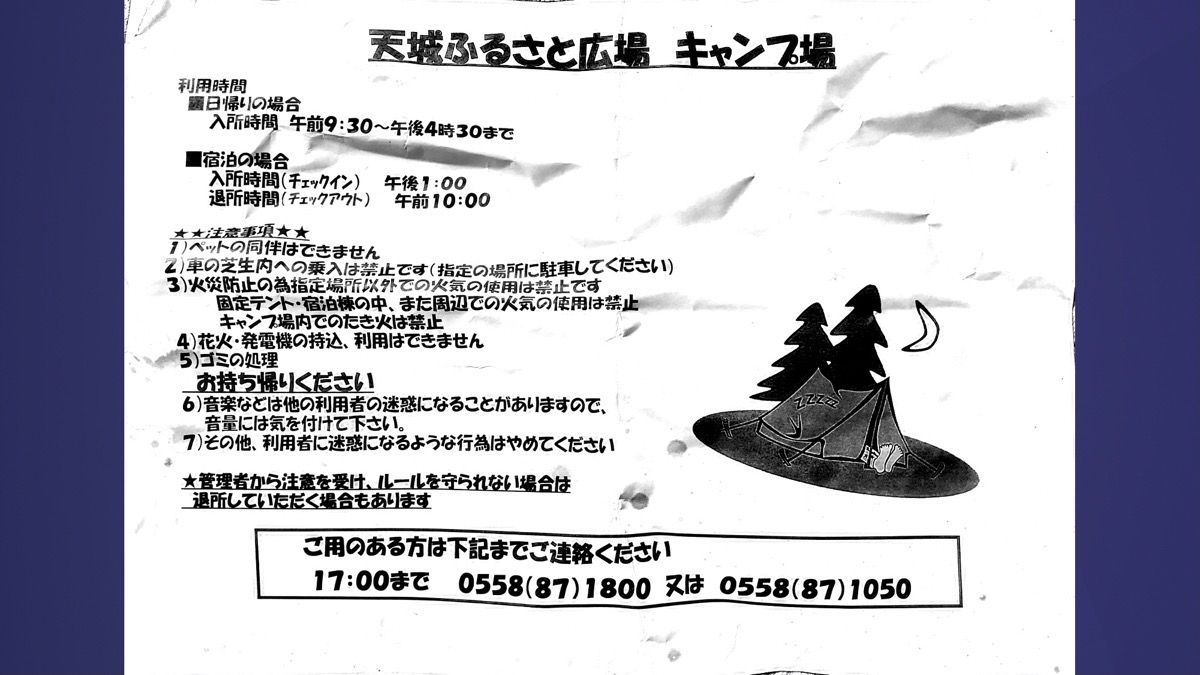 天城ふるさと広場 キャンプ場
利用時間
■日帰りの場合
入所時間 午前9:30～午後4時30まで
■宿泊の場合
入所時間(チェックイン) 午後1:00
退所時間(チェックアウト) 午前10:00
★★注意事項★★
1)ペットの同伴はできません
2)車の芝生内への乗入は禁止です(指定の場所に駐車してください)
3)火災防止の為指定場所以外での火気の使用は禁止です
固定テント・宿泊棟の中、また周辺での火気の使用は禁止
キャンプ場内でのたき火は禁止
4)花火・発電機の持込、利用はできません
5)ゴミの処理
お持ち帰りください
6)音楽などは他の利用者の迷惑になることがありますので、
音量には気を付けて下さい。
7)その他、利用者に迷惑になるような行為はやめてください
ZZZZZ
★管理者から注意を受け、ルールを守られない場合は
退所していただく場合もあります
ご用のある方は下記までご連絡ください
17:00まで 0558(87)1800 又は 0558(87)1050